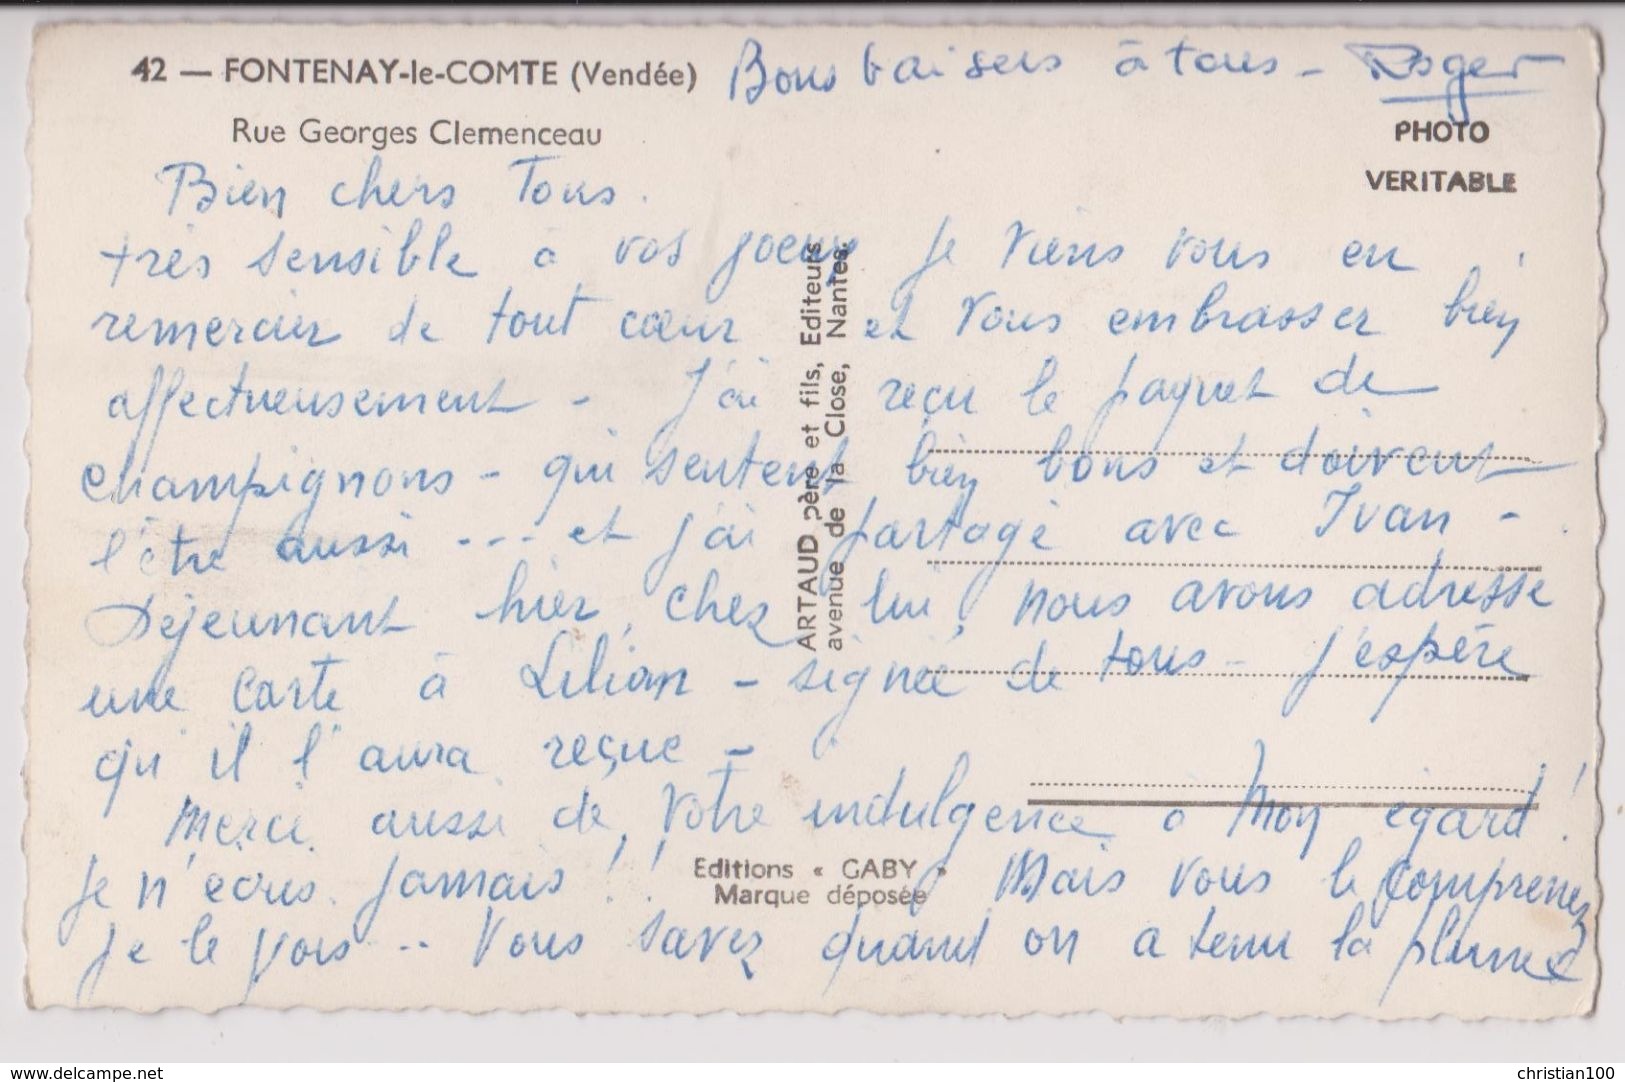 42 — FONTENAY-le-COMTE (Vendée)
Bons baisers à tous - Roger
Rue Georges Clemenceau
PHOTO
VERITABLE
Bien chers Tous.
très sensible à vos voeux je viens vous en
remercier de tout cœur et vous embrasser bien
affectueusement - J'ai reçu le paquet de
champignons - qui sentent bien bons et doivent
l'être aussi --- et j'ai partagé avec Ivan -
Déjeunant hier, chez lui, nous avons adressé
une carte à Lilian - signée de tous - J'espère
qu'il l'aura reçue -
Merci aussi de votre indulgence à mon égard !
Je n'écris jamais !! Mais vous le comprenez
je le vois -- Vous savez quand on a tenu la plume
ARTAUD père et fils, Editeurs
avenue de la Close, Nantes.
Editions « GABY »
Marque déposée
www.delcampe.net
christian100